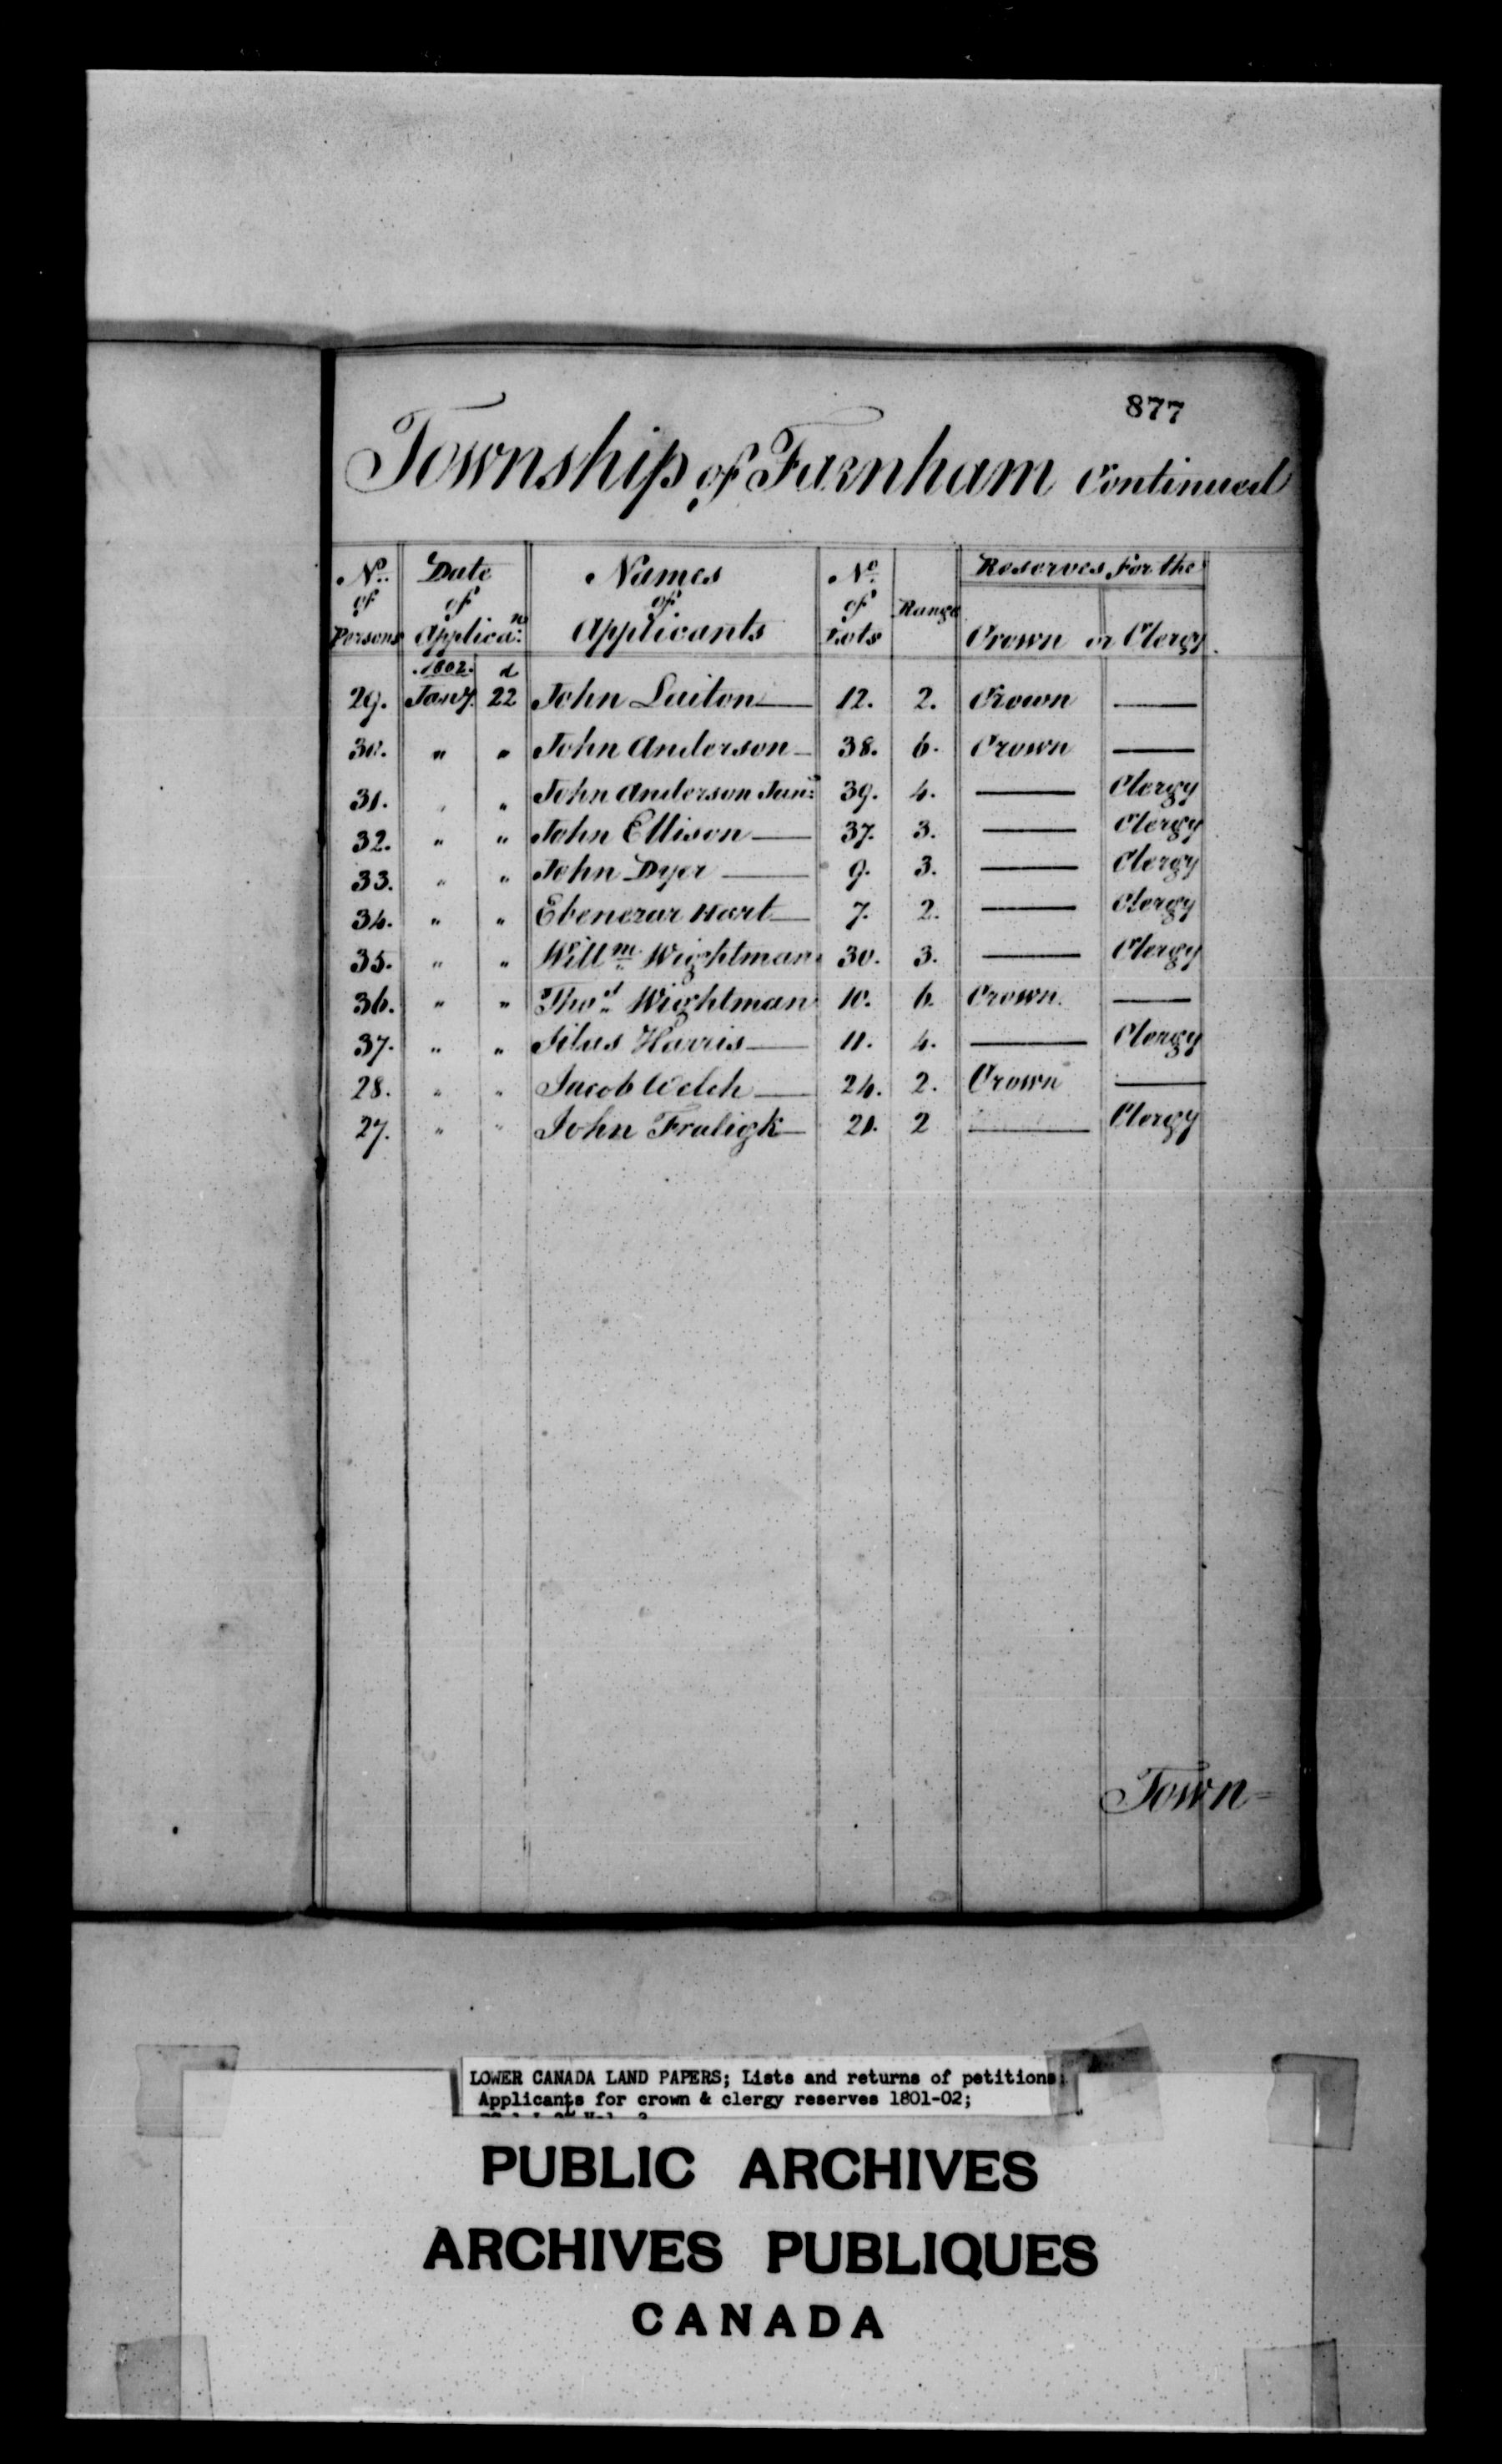 877
Township of Farnham Continued
No. of Persons | Date of Applican: | Names of Applicants | No. of Lots | Range | Reserves for the Crown or Clergy.
1802. d
29. Jany. 22 John Laiton 12. 2. Crown —
30. " " John Anderson 38. 6. Crown —
31. " " John Anderson Junr: 39. 4. — Clergy
32. " " John Ellison 37. 3. — Clergy
33. " " John Dyer 9. 3. — Clergy
34. " " Ebenezar Hart 7. 2. — Clergy
35. " " Willm Wightman 30. 3. — Clergy
36. " " Thos Wightman 10. 6. Crown. —
37. " " Titus Harris 11. 4. — Clergy
28. " " Jacob Welch 24. 2. Crown —
27. " " John Fraligk 21. 2 — Clergy
Town=
LOWER CANADA LAND PAPERS; Lists and returns of petitions;
Applicants for crown & clergy reserves 1801-02;
PUBLIC ARCHIVES
ARCHIVES PUBLIQUES
CANADA